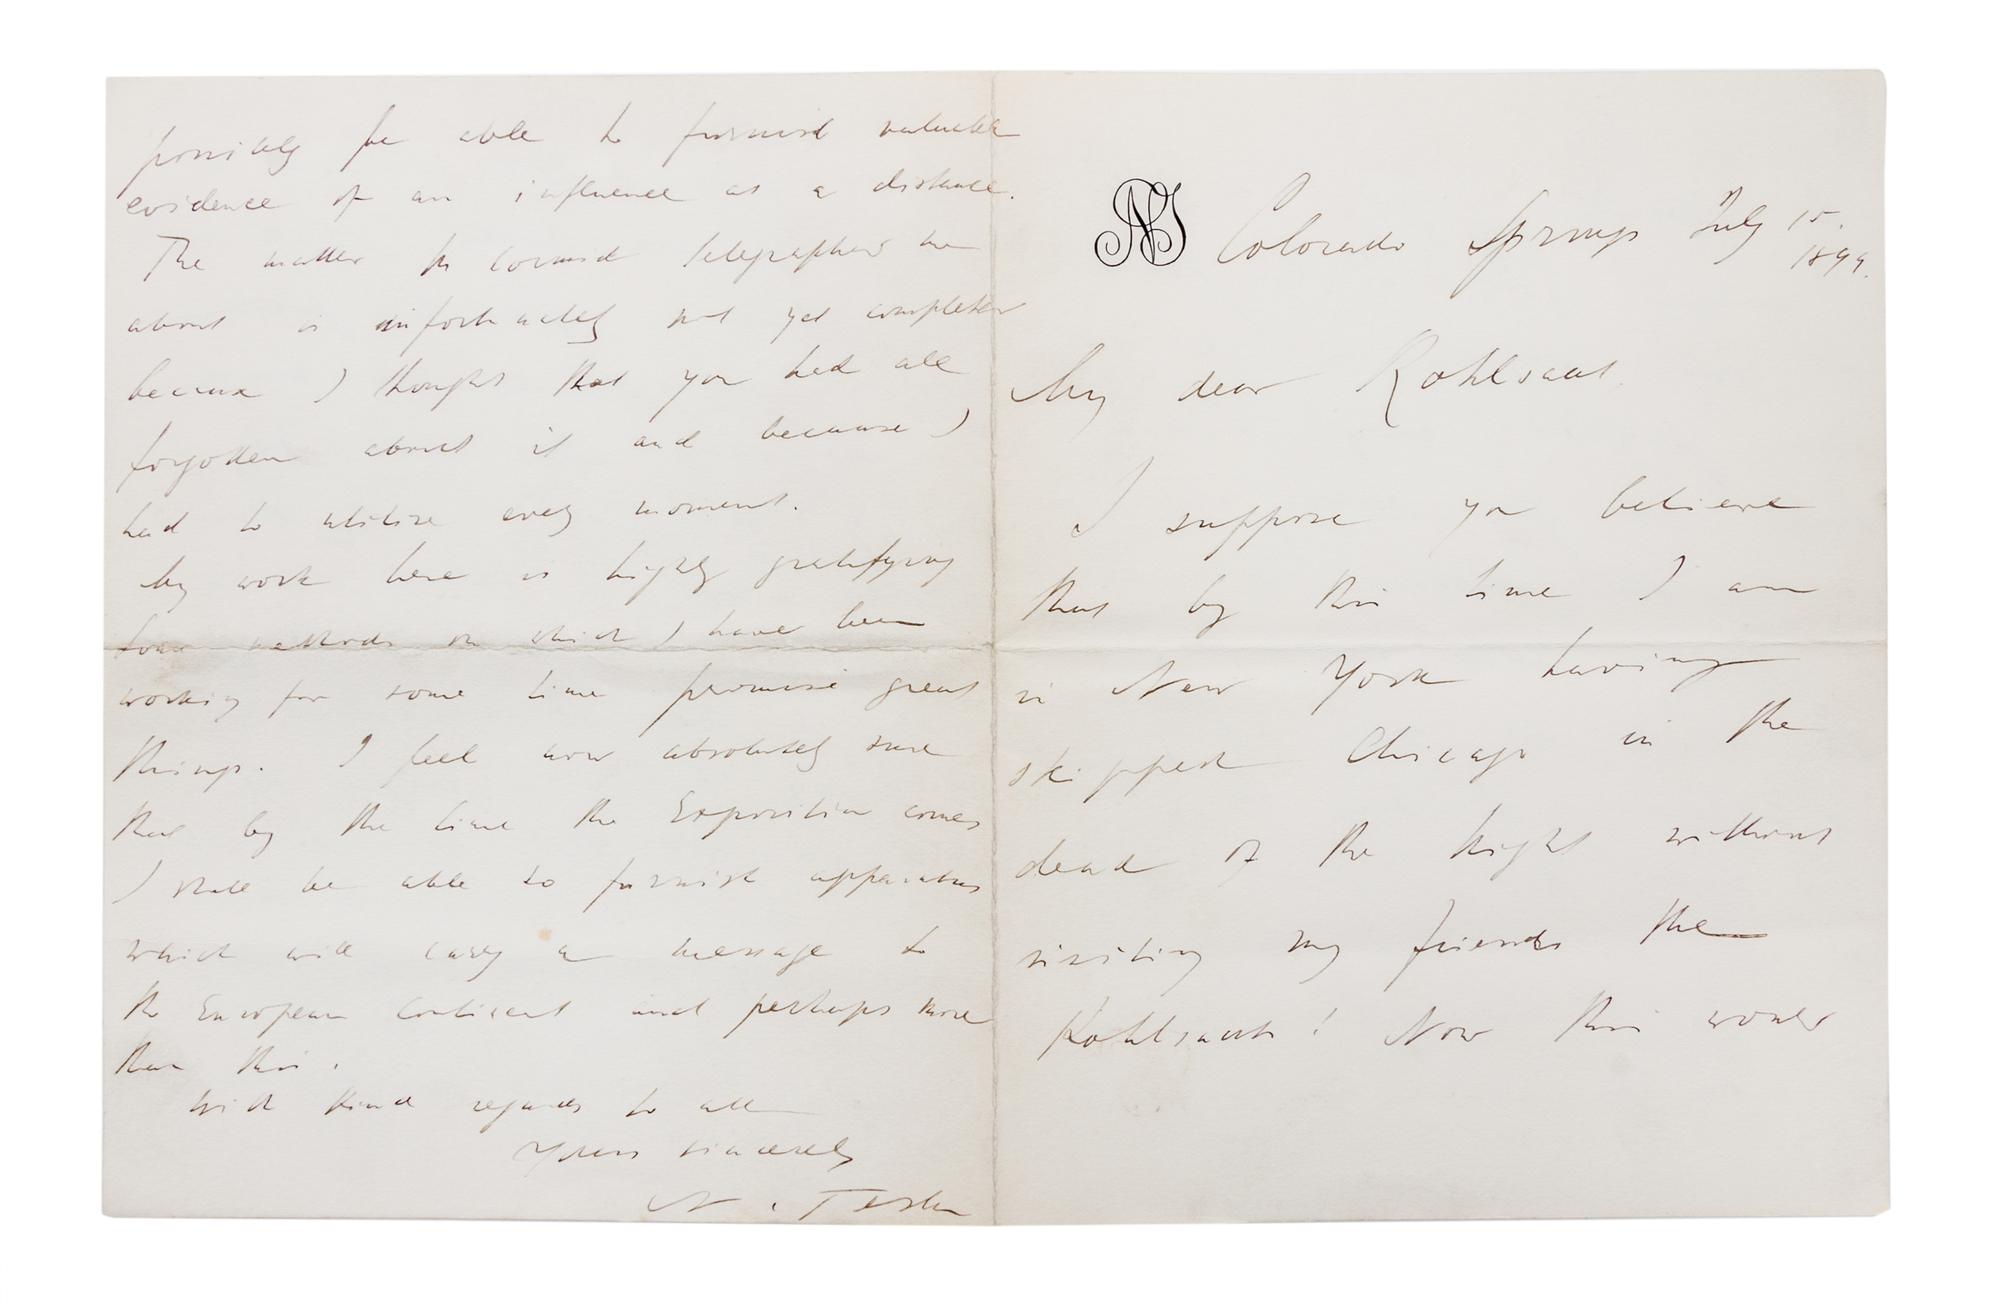 NT Colorado Springs July 15.
1899.
My dear Kohlsaat.
I suppose you believe
that by this time I am
in New York having
skipped Chicago in the
dead of the night without
visiting my friends the
Kohlsaats! Now this would
possibly be able to furnish valuable
evidence of an influence at a distance.
The matter
about is unfortunately not yet completed
because I thought that you had all
forgotten about it and because I
had to utilize every moment.
My work here is highly gratifying
Some methods on which I have been
working for some time promise great
things. I feel now absolutely sure
that by the time the Exposition comes
I shall be able to furnish apparatus
which will carry a message to
the European continent and perhaps more
than this.
With kind regards to all
Yours sincerely
N. Tesla